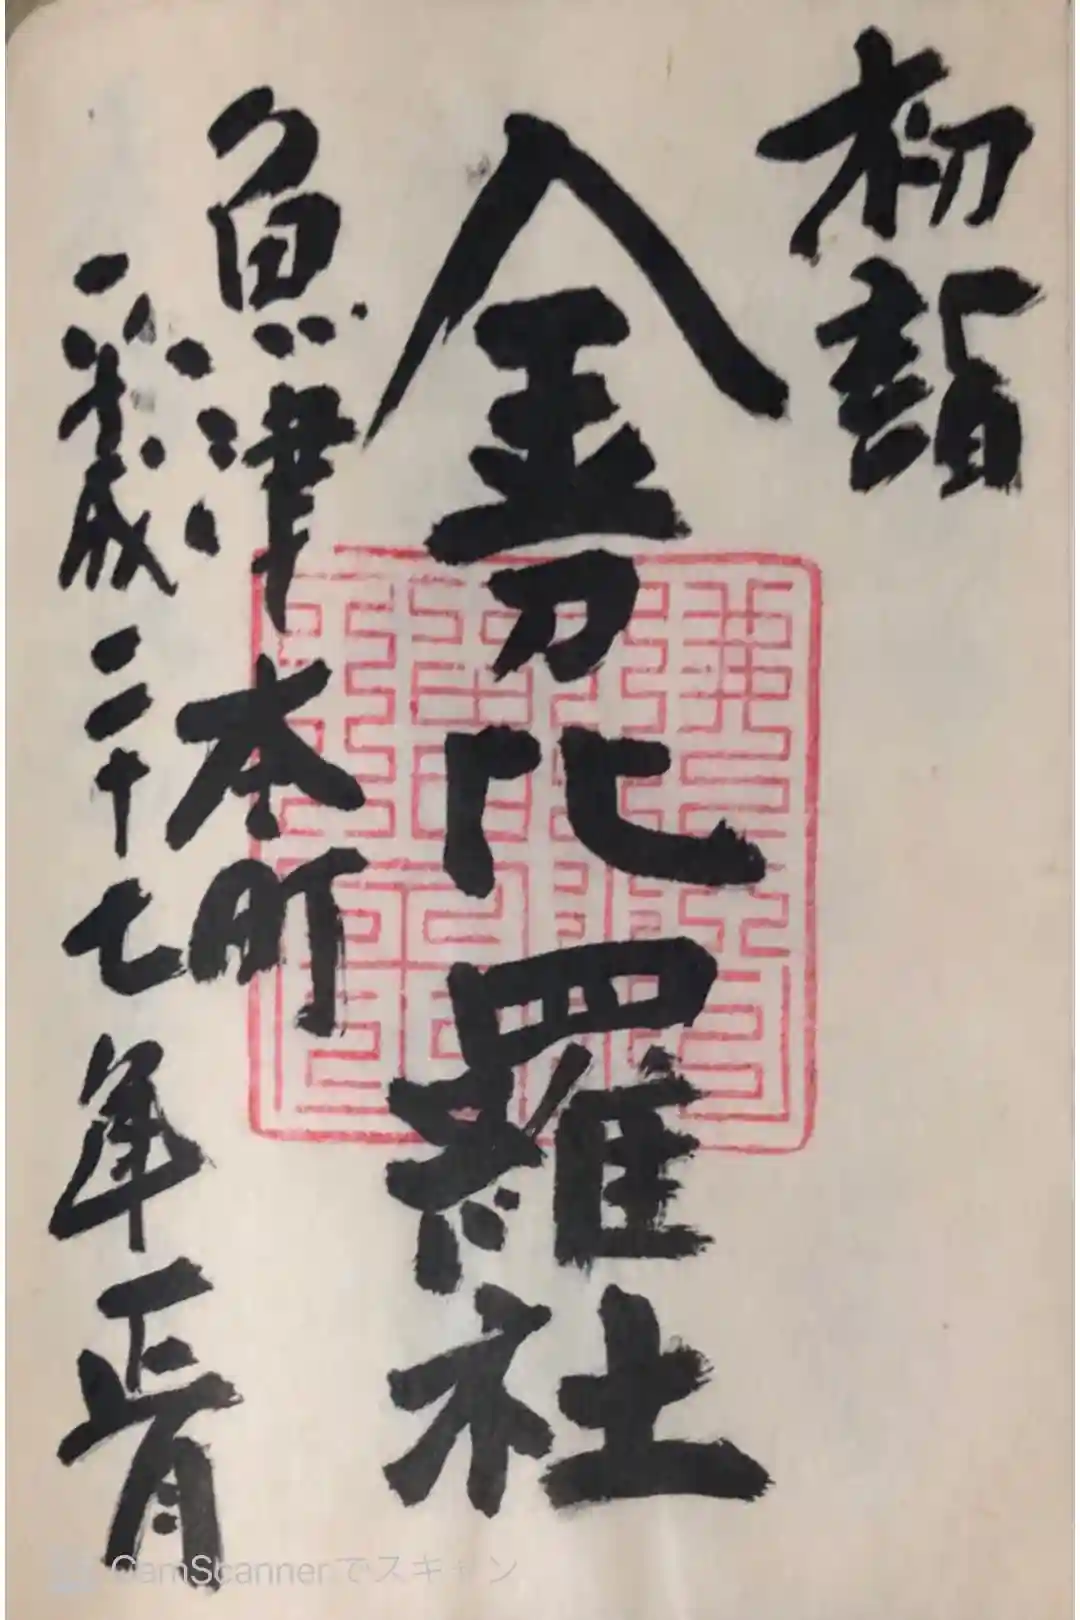 初詣
金刀比羅社
魚津本町
平成二十七年正月
CamScannerでスキャン